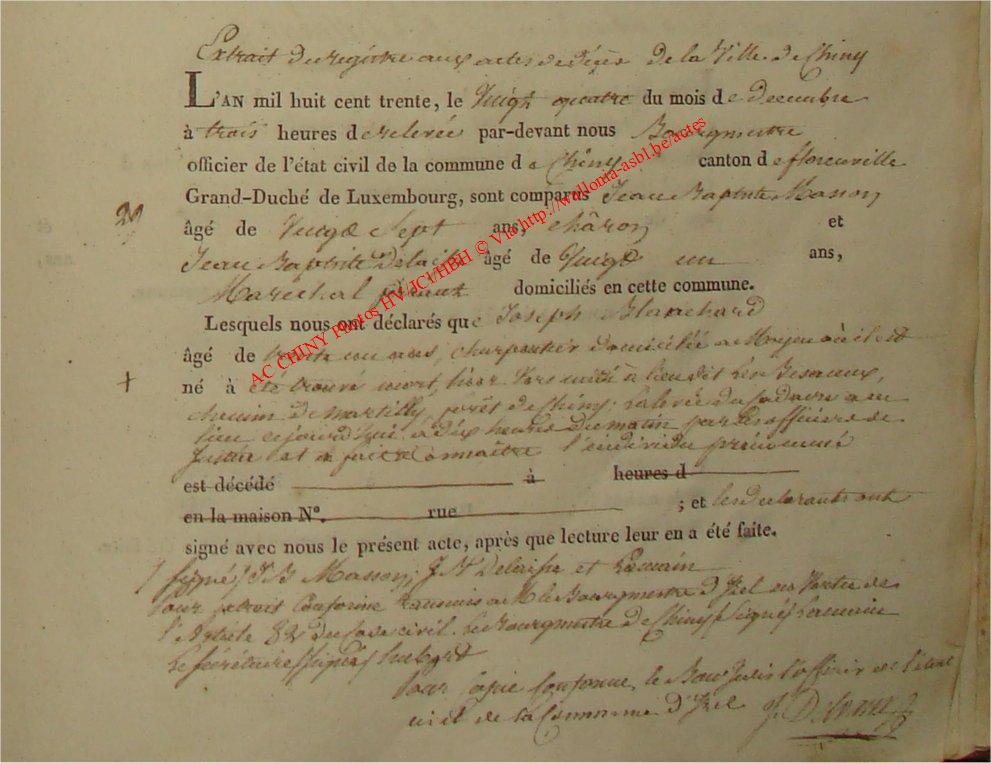 Extrait du registre aux actes de décès de la Ville de Chiny
L'AN mil huit cent trente, le Vingt quatre du mois de decembre
à trois heures de relevée par-devant nous Bourgmestre
officier de l'état civil de la commune de Chiny canton de florenville
Grand-Duché de Luxembourg, sont comparus Jean Baptiste Masson
29
âgé de Vingt Sept ans, châron et
Jean Baptiste âgé de Vingt un ans,
Maréchal ferrant domiciliés en cette commune.
Lesquels nous ont déclarés que Joseph Blanchard
âgé de trente un ans, charpentier domicilié a Moyen où il est
+
né à été trouvé mort, hier Vers midi à lieu dit Les
chemin de Martilly, forêt de Chiny; la levée du Cadavre a eu
lieu cejourd'hui à dix heures du matin par les officiers de
Justice et a fait connaître l'individu prénommé
est décédé à heures d
en la maison N°. rue ; et les declarants ont
signé avec nous le présent acte, après que lecture leur en a été faite.
/ signé / J B Masson, J et
Pour extrait Conforme transmis a M le Bourgmestre d'Izel en Vertu de
l'Article 82 du Code civil. Le Bourgmestre de Chiny / Signé /
Le sécrétaire / signé / hubert
Pour Copie Conforme, le l'officier de l'état
civil de la Commune d'Izel J.
AC CHINY Photos HV JCI/HBH © Via http://wallonia-asbl.be/actes